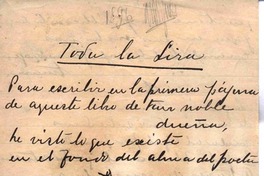 Toda la Lira
Para escribir en la primera página
de aqueste libro de tan noble
dueña,
he visto lo que existe
en el fondo del alma del poeta